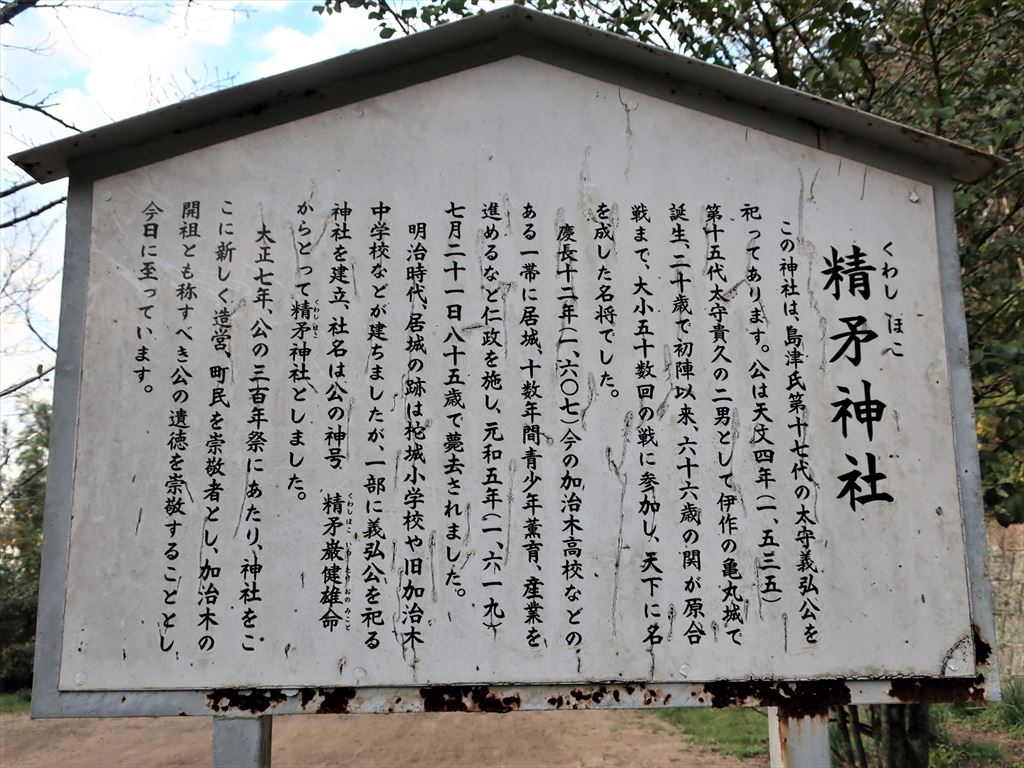 くわし ほこ
精矛神社
この神社は、島津氏第十七代の太守義弘公を
祀ってあります。公は天文四年(一、五三五)
第十五代太守貴久の二男として伊作の亀丸城で
誕生、二十歳で初陣以来、六十六歳の関が原合
戦まで、大小五十数回の戦に参加し、天下に名
を成した名将でした。
慶長十二年(一、六〇七)今の加治木高校などの
ある一帯に居城、十数年間青少年薫育、産業を
進めるなど仁政を施し、元和五年(一、六一九)
七月二十一日八十五歳で薨去されました。
明治時代、居城の跡は柁城小学校や旧加治木
中学校などが建ちましたが、一部に義弘公を祀る
神社を建立、社名は公の神号 精矛厳健雄命
からとって精矛神社としました。
大正七年、公の三百年祭にあたり、神社をこ
こに新しく造営、町民を崇敬者とし、加治木の
開祖とも称すべき公の遺徳を崇敬することとし
今日に至っています。